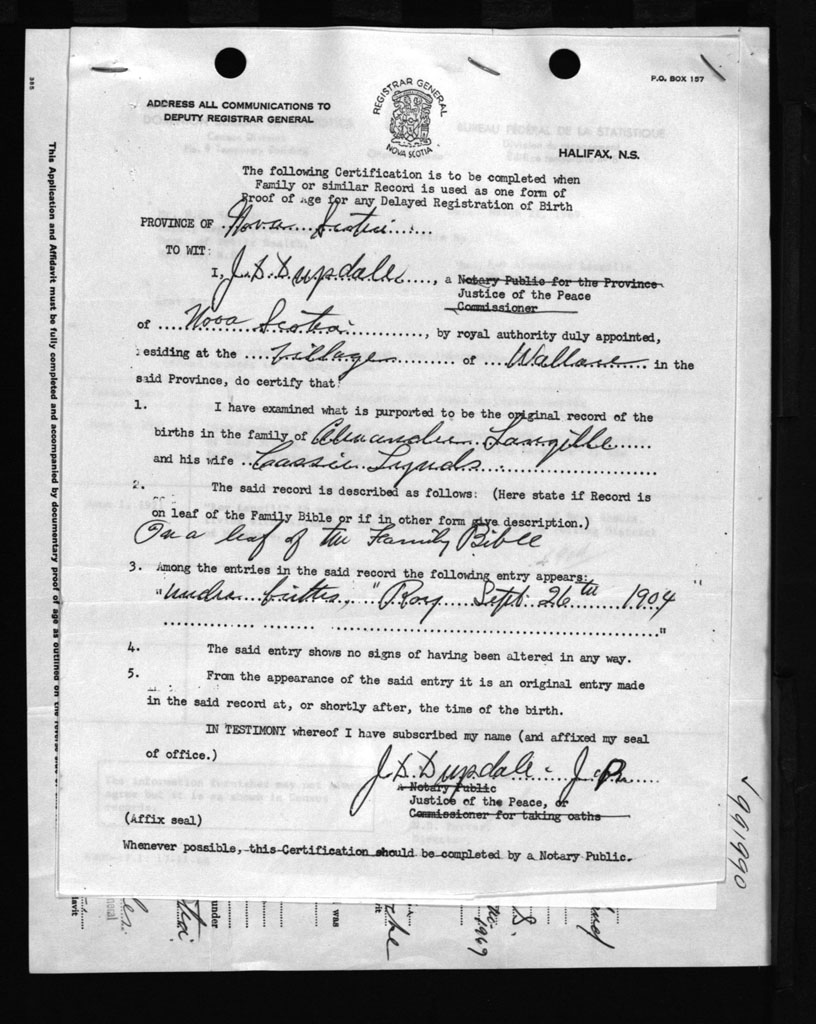 P.O. BOX 157
ADDRESS ALL COMMUNICATIONS TO
DEPUTY REGISTRAR GENERAL
REGISTRAR GENERAL
NOVA SCOTIA
HALIFAX, N.S.
The following Certification is to be completed when
Family or similar Record is used as one form of
Proof of Age for any Delayed Registration of Birth
PROVINCE OF Nova Scotia
TO WIT:
I, J.D. Dupdale, a Notary Public for the Province
Justice of the Peace
Commissioner
of Nova Scotia, by royal authority duly appointed,
residing at the village of Wallace in the
said Province, do certify that:
1. I have examined what is purported to be the original record of the
births in the family of Alexander Langille
and his wife Cassie Lynds
2. The said record is described as follows: (Here state if Record is
on leaf of the Family Bible or if in other form give description.)
On a leaf of the Family Bible
3. Among the entries in the said record the following entry appears:
"under births, "Roy Sept. 26th 1904"
"
4. The said entry shows no signs of having been altered in any way.
5. From the appearance of the said entry it is an original entry made
in the said record at, or shortly after, the time of the birth.
IN TESTIMONY whereof I have subscribed my name (and affixed my seal
of office.)
J.D. Dupdale J.P.
A Notary Public
Justice of the Peace, or
Commissioner for taking oaths
(Affix seal)
Whenever possible, this Certification should be completed by a Notary Public.
This Application and Affidavit must be fully completed and accompanied by documentary proof of age as outlined on the reverse
under
was
the
1969